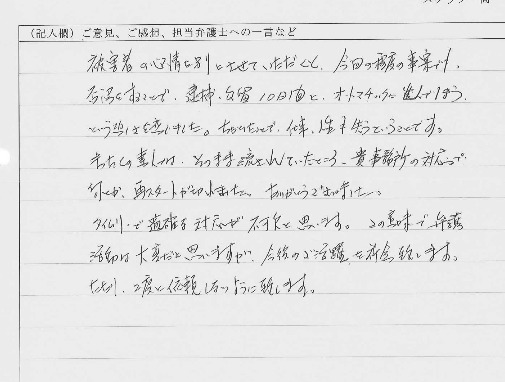 (記入欄) ご意見、ご感想、担当弁護士への一言など
被害者の心情を別とさせていただくと、今回の程度の事案でも、
否認をすることで、逮捕、勾留10日間と、オートマチックに進んでしまう
という恐さを感じました。
まして素人は、そのまま流されていたところ、貴事務所の対応で
何とか、再スタートがきれました。ありがとうございました。
タイムリーで適確な対応が不可欠と思います。この意味で弁護
活動は大変だと思いますが、今後のご活躍を祈念致します。
2度と依頼しないように致します。